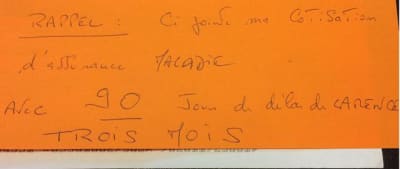 RAPPEL : Ci jointe ma Cotisation
d'assurance MALADIE
AVEC 90 Jours de délai de CARENCE
TROIS MOIS